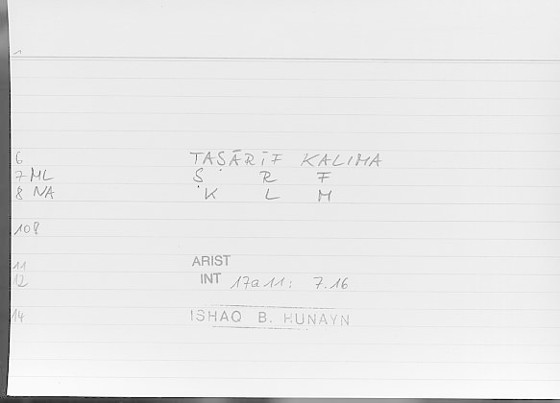 1
6 TAṢĀRĪF KALIMA
7 ML Ṣ R F
8 NA K L M
108
11 ARIST
12 INT 17a11: 7.16
14 ISHAQ B. HUNAYN